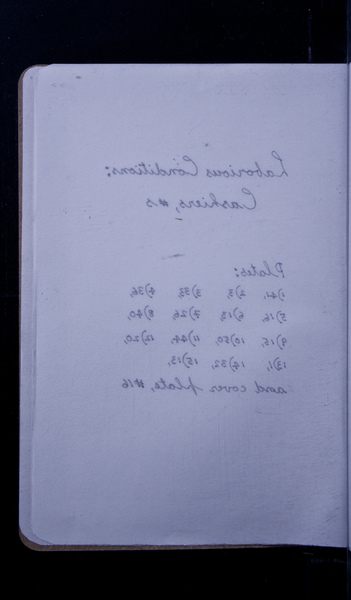 Laborious Conditions:
Cashiers, #s
Plates:
1) 41, 2) 3, 3) 33, 4) 36,
5) 16, 6) 13, 7) 26, 8) 40,
9) 15, 10) 50, 11) 44, 12) 20,
13) 1, 14) 32, 15) 13,
and cover plate, #16